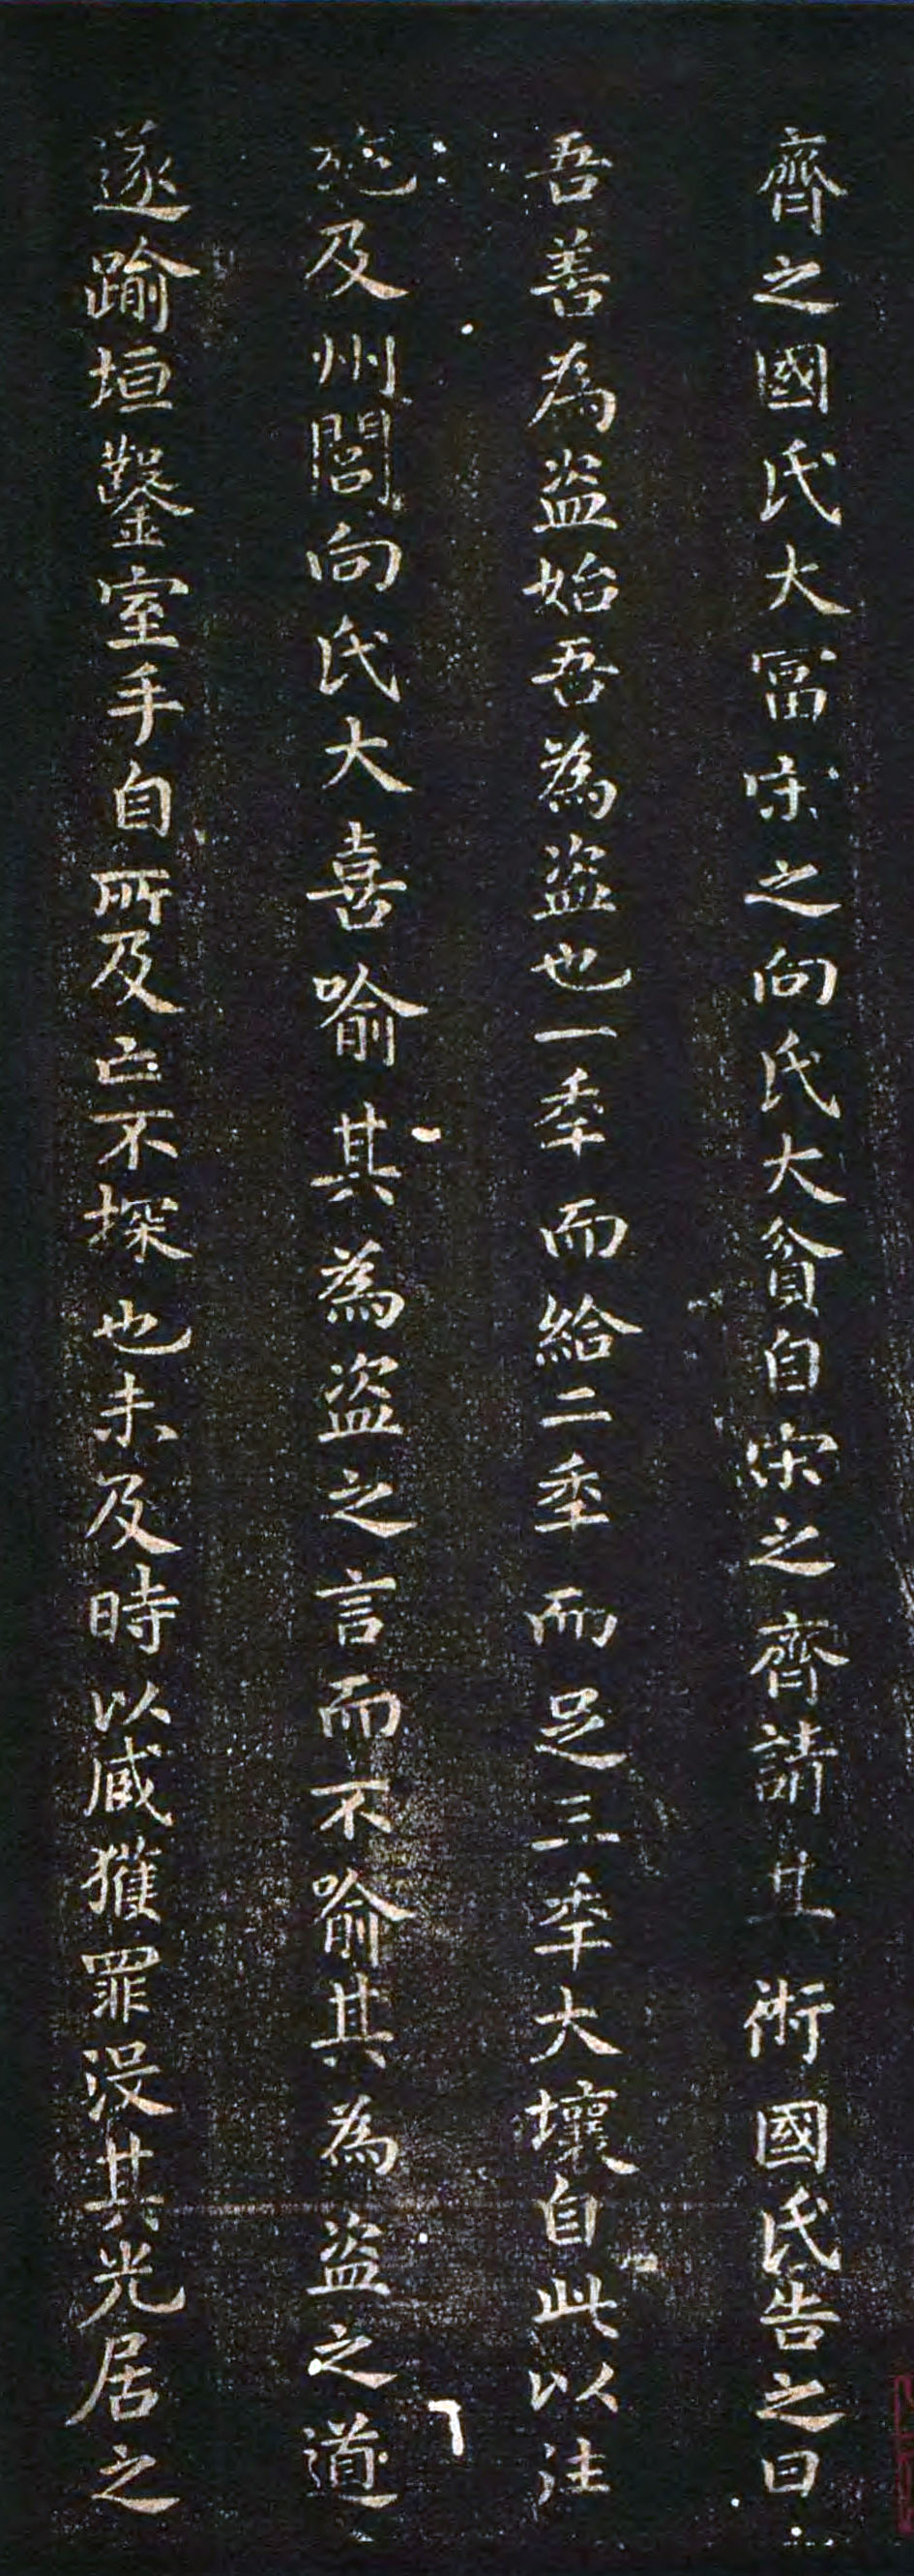 齊之國氏大冨宋之向氏大貧自宋之齊請其術國氏告之曰
吾善為盜始吾為盜也一秊而給二秊而足三秊大壤自此以往
施及州閭向氏大喜喻其為盜之言而不喻其為盜之道
遂踰垣鑿室手自所及亡不探也未及時以臧獲罪沒其先居之